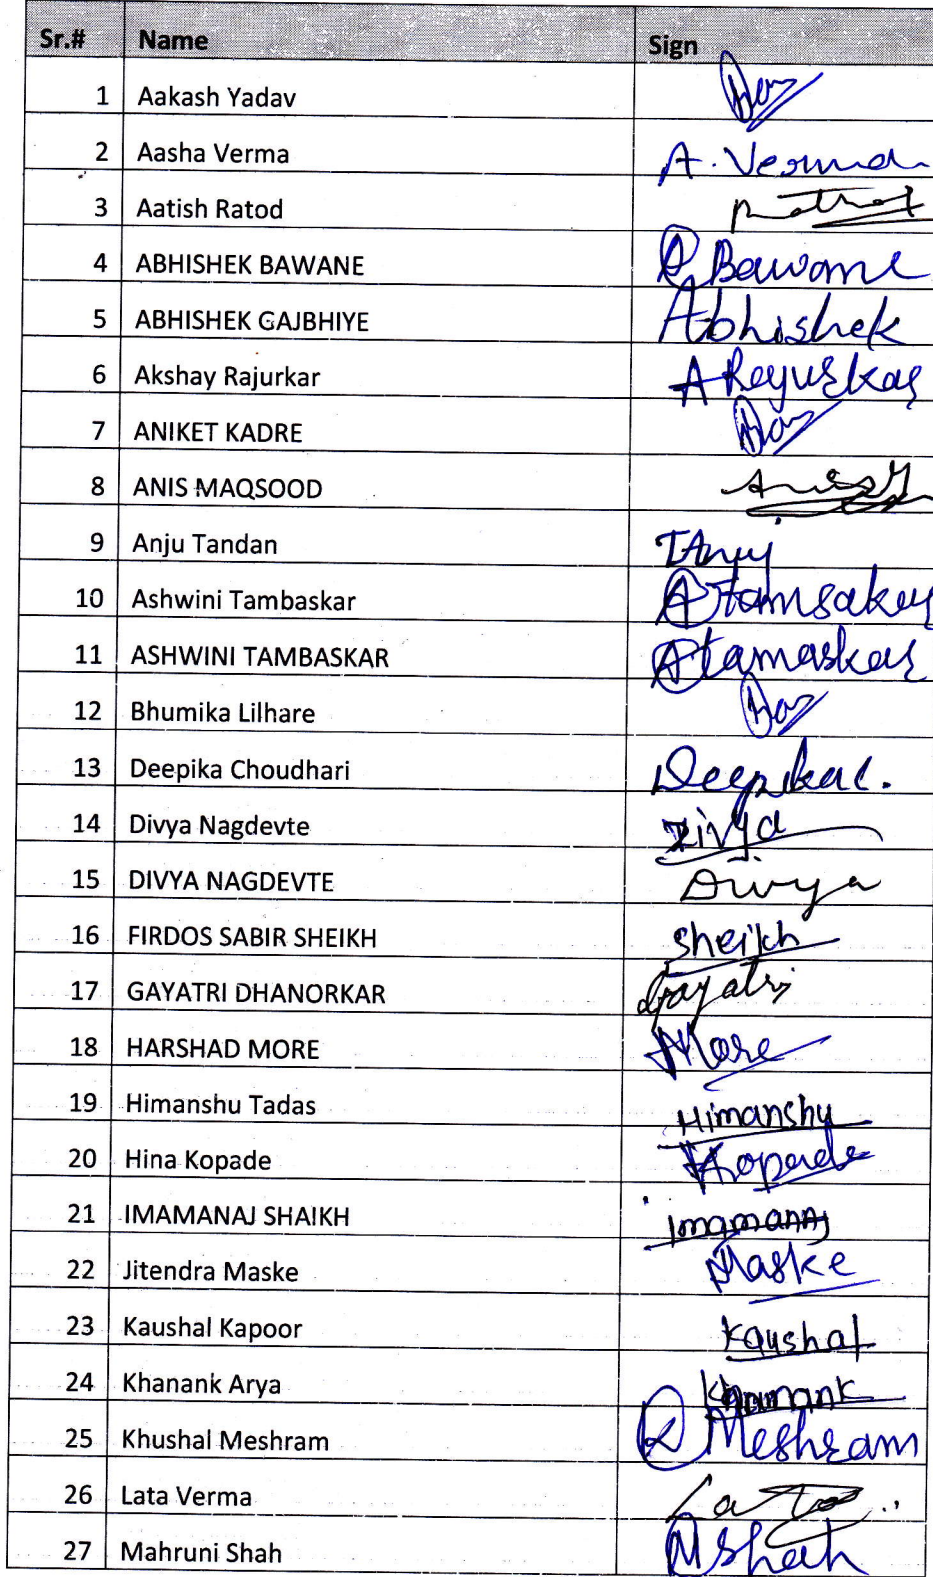 Sr.# Name Sign
1 Aakash Yadav
2 Aasha Verma A. Verma
3 Aatish Ratod
4 ABHISHEK BAWANE A Bawane
5 ABHISHEK GAJBHIYE Abhishek
6 Akshay Rajurkar A Rajurkar
7 ANIKET KADRE
8 ANIS MAQSOOD
9 Anju Tandan TAnju
10 Ashwini Tambaskar A Tamsakar
11 ASHWINI TAMBASKAR A tamaskar
12 Bhumika Lilhare
13 Deepika Choudhari Deepika C.
14 Divya Nagdevte Divya
15 DIVYA NAGDEVTE Divya
16 FIRDOS SABIR SHEIKH Sheikh
17 GAYATRI DHANORKAR Gayatri
18 HARSHAD MORE More
19 Himanshu Tadas Himanshu
20 Hina Kopade Kopade
21 IMAMANAJ SHAIKH Imamanaj
22 Jitendra Maske Maske
23 Kaushal Kapoor Kaushal
24 Khanank Arya Khanank
25 Khushal Meshram K Meshram
26 Lata Verma Lata
27 Mahruni Shah M Shah